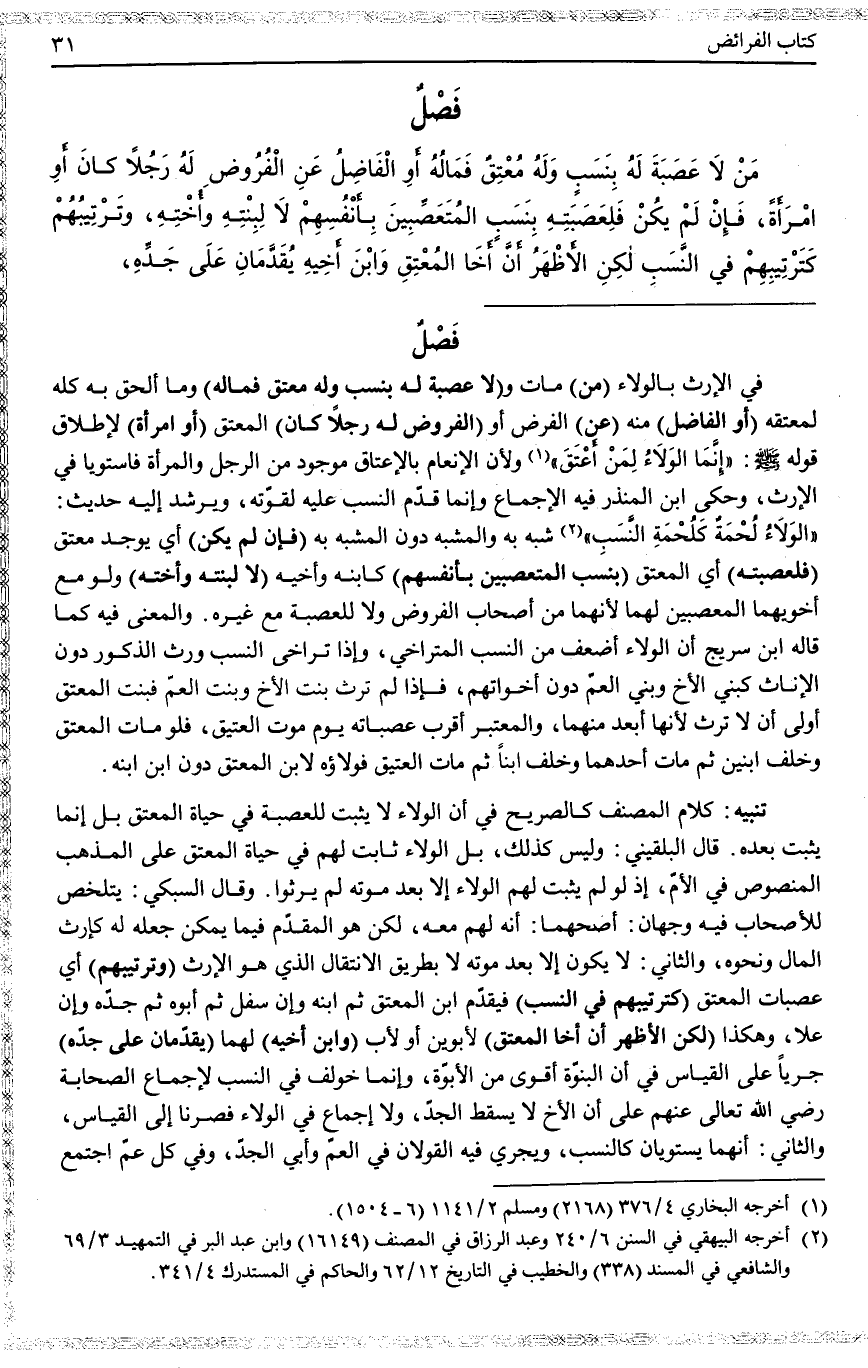 كتاب الفرائض ٣١
فَصْلٌ
مَنْ لَا عَصَبَةَ لَهُ بِنَسَبٍ وَلَهُ مُعْتِقٌ فَمَالُهُ أَوِ الْفَاضِلُ عَنِ الْفُرُوضِ لَهُ رَجُلًا كانَ أَوِ
امْرَأَةً، فَإِنْ لَمْ يَكُنْ فَلِعَصَبَتِهِ بِنَسَبٍ المُتَعَصِّبِينَ بِأَنْفُسِهِمْ لَا لِبِنْتِهِ وأُخْتِهِ، وتَرْتِيبُهُمْ
كَتَرْتِيبِهِمْ في النَّسَبِ لٰكِنِ الأَظْهَرُ أَنَّ أَخَا المُعْتِقِ وَابْنَ أَخِيهِ يُقَدَّمَانِ عَلَى جَدِّهِ،
فَصْلٌ
في الإرث بالولاء (من) مات و(لا عصبة له بنسب وله معتق فماله) وما ألحق به كله
لمعتقه (أو الفاضل) منه (عن) الفرض أو (الفروض له رجلاً كان) المعتق (أو امرأة) لإطلاق
قوله ﷺ: «إِنَّمَا الوَلَاءُ لِمَنْ أَعْتَقَ»(١) ولأن الإنعام بالإعتاق موجود من الرجل والمرأة فاستويا في
الإرث، وحكى ابن المنذر فيه الإجماع وإنما قدّم النسب عليه لقوّته، ويرشد إليه حديث:
«الوَلَاءُ لُحْمَةٌ كَلُحْمَةِ النَّسَبِ»(٢) شبه به والمشبه دون المشبه به (فإن لم يكن) أي يوجد معتق
(فلعصبته) أي المعتق (بنسب المتعصبين بأنفسهم) كابنه وأخيه (لا لبنته وأخته) ولو مع
أخويهما المعصبين لهما لأنهما من أصحاب الفروض ولا للعصبة مع غيره. والمعنى فيه كما
قاله ابن سريج أن الولاء أضعف من النسب المتراخي، وإذا تراخى النسب ورث الذكور دون
الإناث كبني الأخ وبني العمّ دون أخواتهم، فإذا لم ترث بنت الأخ وبنت العمّ فبنت المعتق
أولى أن لا ترث لأنها أبعد منهما، والمعتبر أقرب عصباته يوم موت العتيق، فلو مات المعتق
وخلف ابنين ثم مات أحدهما وخلف ابناً ثم مات العتيق فولاؤه لابن المعتق دون ابن ابنه.
تنبيه: كلام المصنف كالصريح في أن الولاء لا يثبت للعصبة في حياة المعتق بل إنما
يثبت بعده. قال البلقيني: وليس كذلك، بل الولاء ثابت لهم في حياة المعتق على المذهب
المنصوص في الأمّ، إذ لو لم يثبت لهم الولاء إلا بعد موته لم يرثوا. وقال السبكي: يتلخص
للأصحاب فيه وجهان: أصحهما: أنه لهم معه، لكن هو المقدّم فيما يمكن جعله له كإرث
المال ونحوه، والثاني: لا يكون إلا بعد موته لا بطريق الانتقال الذي هو الإرث (وترتيبهم) أي
عصبات المعتق (كترتيبهم في النسب) فيقدّم ابن المعتق ثم ابنه وإن سفل ثم أبوه ثم جدّه وإن
علا، وهكذا (لكن الأظهر أن أخا المعتق) لأبوين أو لأب (وابن أخيه) لهما (يقدّمان على جدّه)
جرياً على القياس في أن البنوّة أقوى من الأبوّة، وإنما خولف في النسب لإجماع الصحابة
رضي الله تعالى عنهم على أن الأخ لا يسقط الجدّ، ولا إجماع في الولاء فصرنا إلى القياس،
والثاني: أنهما يستويان كالنسب، ويجري فيه القولان في العمّ وأبي الجدّ، وفي كل عمّ اجتمع
(١) أخرجه البخاري ٣٧٦/٤ (٢١٦٨) ومسلم ١١٤١/٢ (٦-١٥٠٤).
(٢) أخرجه البيهقي في السنن ٢٤٠/٦ وعبد الرزاق في المصنف (١٦١٤٩) وابن عبد البر في التمهيد ٦٩/٣
والشافعي في المسند (٣٣٨) والخطيب في التاريخ ٦٢/١٢ والحاكم في المستدرك ٣٤١/٤.